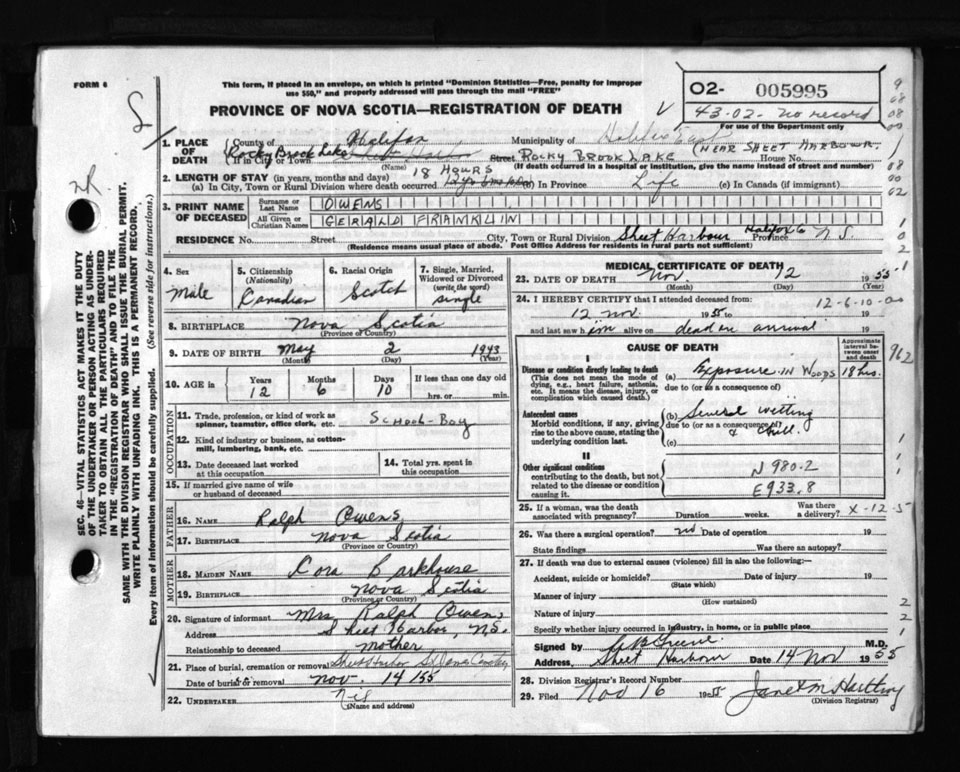 FORM 6
This form, if placed in an envelope, on which is printed "Dominion Statistics—Free, penalty for improper
use $50," and properly addressed will pass through the mail "FREE"
O2- 005995
43-02- no record
For use of the Department only
PROVINCE OF NOVA SCOTIA—REGISTRATION OF DEATH
1. PLACE OF DEATH
County of Halifax Municipality of Halifax East
(If in City or Town) Rocky Brook Lake Street ROCKY BROOK LAKE (NEAR SHEET HARBOUR. House No.
(Name) (If death occurred in a hospital or institution, give the name instead of street and number)
2. LENGTH OF STAY (in years, months and days) 18 HOURS
(a) In City, Town or Rural Division where death occurred (b) In Province Life (c) In Canada (if immigrant)
3. PRINT NAME OF DECEASED
Surname or Last Name OWENS
All Given or Christian Names GERALD FRANKLIN
RESIDENCE No. Street City, Town or Rural Division Sheet Harbour Halifax Co Province N.S.
(Residence means usual place of abode. Post Office Address for residents in rural parts not sufficient)
4. Sex Male
5. Citizenship (Nationality) Canadian
6. Racial Origin Scotch
7. Single, Married, Widowed or Divorced (write the word) single
8. BIRTHPLACE Nova Scotia
(Province or Country)
9. DATE OF BIRTH May 2 1943
(Month) (Day) (Year)
10. AGE in Years 12 Months 6 Days 10 If less than one day old
hrs. or min.
OCCUPATION
11. Trade, profession, or kind of work as
spinner, teamster, office clerk, etc. School-Boy
12. Kind of industry or business, as cotton-
mill, lumbering, bank, etc.
13. Date deceased last worked
at this occupation
14. Total yrs. spent in
this occupation
15. If married give name of wife
or husband of deceased
FATHER
16. NAME Ralph Owens
17. BIRTHPLACE Nova Scotia
(Province or Country)
MOTHER
18. MAIDEN NAME Cora Barkhouse
19. BIRTHPLACE Nova Scotia
(Province or Country)
20. Signature of informant Mrs Ralph Owens
Address Sheet Harbor, N.S.
Relationship to deceased mother
21. Place of burial, cremation or removal Sheet Harbor St James Cemetery
Date of burial or removal Nov. 14 /55
22. UNDERTAKER Nil
(Name and address)
MEDICAL CERTIFICATE OF DEATH
23. DATE OF DEATH Nov 12 1955
(Month) (Day)
24. I HEREBY CERTIFY that I attended deceased from: 12-6-10-00
12 nov. 1955 to 19
and last saw him alive on dead on arrival 19
CAUSE OF DEATH
Approximate interval between onset and death
962
I
Disease or condition directly leading to death
(This does not mean the mode of
dying, e.g., heart failure, asthenia,
etc. It means the disease, injury, or
complication which caused death.)
(a) Exposure IN WOODS 18 hrs.
due to (or as a consequence of)
Antecedent causes
Morbid conditions, if any, giving
rise to the above cause, stating the
underlying condition last.
(b) General wetting
due to (or as a consequence of)
& chill.
(c)
II
Other significant conditions
contributing to the death, but not
related to the disease or condition
causing it.
N 980.2
E933.8
25. If a woman, was the death
associated with pregnancy? Duration weeks. Was there
a delivery? X-12-5
26. Was there a surgical operation? no Date of operation 19
State findings Was there an autopsy?
27. If death was due to external causes (violence) fill in also the following:—
Accident, suicide or homicide? Date of injury 19
(State which)
Manner of injury
(How sustained)
Nature of injury
Specify whether injury occurred in industry, in home, or in public place
Signed by M.D.
Address, Sheet Harbour Date 14 Nov 1955
28. Division Registrar's Record Number
29. Filed Nov 16 1955 Janet M Hartling
(Division Registrar)
SEC. 46—VITAL STATISTICS ACT MAKES IT THE DUTY
OF THE UNDERTAKER OR PERSON ACTING AS UNDER-
TAKER TO OBTAIN ALL THE PARTICULARS REQUIRED
IN THE "REGISTRATION OF DEATH" AND TO FILE THE
SAME WITH THE DIVISION REGISTRAR WHO SHALL ISSUE THE BURIAL PERMIT.
WRITE PLAINLY WITH UNFADING INK. THIS IS A PERMANENT RECORD.
Every item of information should be carefully supplied. (See reverse side for instructions.)